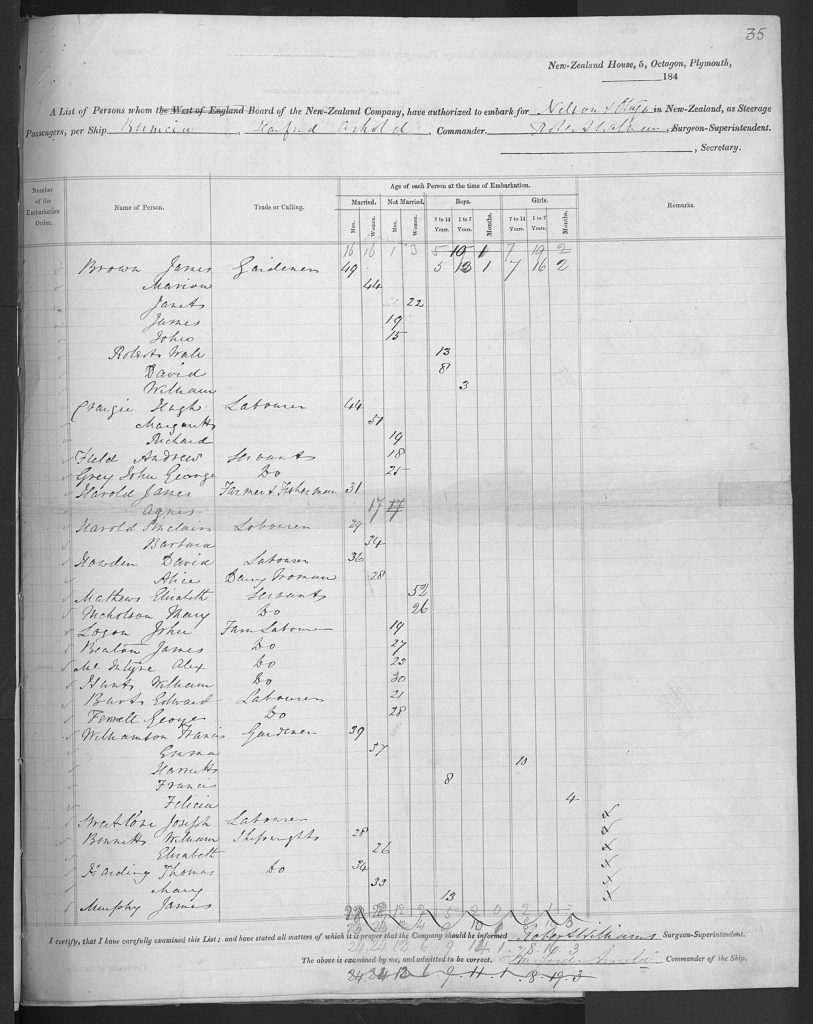 35
New-Zealand House, 5, Octagon, Plymouth,
184
A List of Persons whom the West of England Board of the New-Zealand Company, have authorized to embark for Nelson & Otago in New-Zealand, as Steerage
Passengers, per Ship Bernicia , Arnold , Commander. , Surgeon-Superintendent.
, Secretary.
Number of the Embarkation Order. Name of Person. Trade or Calling. Age of each Person at the time of Embarkation. Remarks.
Married. Not Married. Boys. Girls.
Men. Women. Men. Women. 7 to 14 Years. 1 to 7 Years. Months. 7 to 14 Years. 1 to 7 Years. Months.
16 16 1 3 5 10 1 7 19 2
Brown James Gardener 49 5 13 1 7 16 2
Marion 44
Janet 22
James 19
John 15
Robert 13
David 8
William 3
Craigie Hugh Labourer 44
Margaret 51
Richard 19
Field Andrew Servant 18
Grey John George Do 25
Harold James Farmer & Fisherman 31
Agnes 17 17
Harold Sinclair Labourer 29
Barbara 34
Howden David Labourer 36
Alice Dairy Woman 28
Mathews Elizabeth Servant 52
Nicholson Mary Do 26
Logan John Farm Labourer 19
Beaton James Do 27
McIntyre Alex Do 23
Hunt William Do 30
Edward Labourer 21
George Do 28
Williamson Francis Gardener 39
Emma 37
Harriett 10
Francis 8
Felicia 4
Joseph Labourer
Bennett William Shipwright 28
Elizabeth 26
Harding Thomas Do 34
Mary 33
Murphy James 13
I certify, that I have carefully examined this List; and have stated all matters of which it is proper that the Company should be informed Surgeon-Superintendent.
The above is examined by me, and admitted to be correct. Arnold Commander of the Ship.